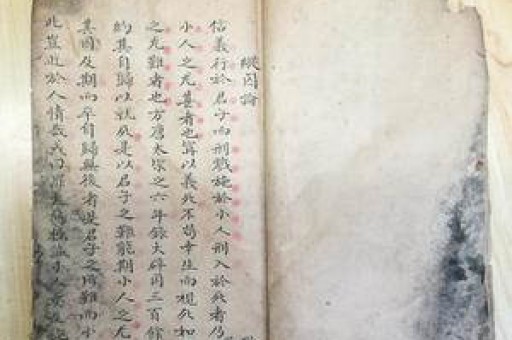 縱囚論
信義行於君子而刑戮施於小人刑入於死者乃
小人之尤甚者也寧以義死不苟幸生而視死如
之尤難者也方唐太宗之六年錄大辟囚三百餘
約其自歸以就死是以君子之難能期小人之尤
其囚及期而卒自歸無後者是君子之所難而小
此豈近於人情哉或曰罪大惡極誠小人矣及施